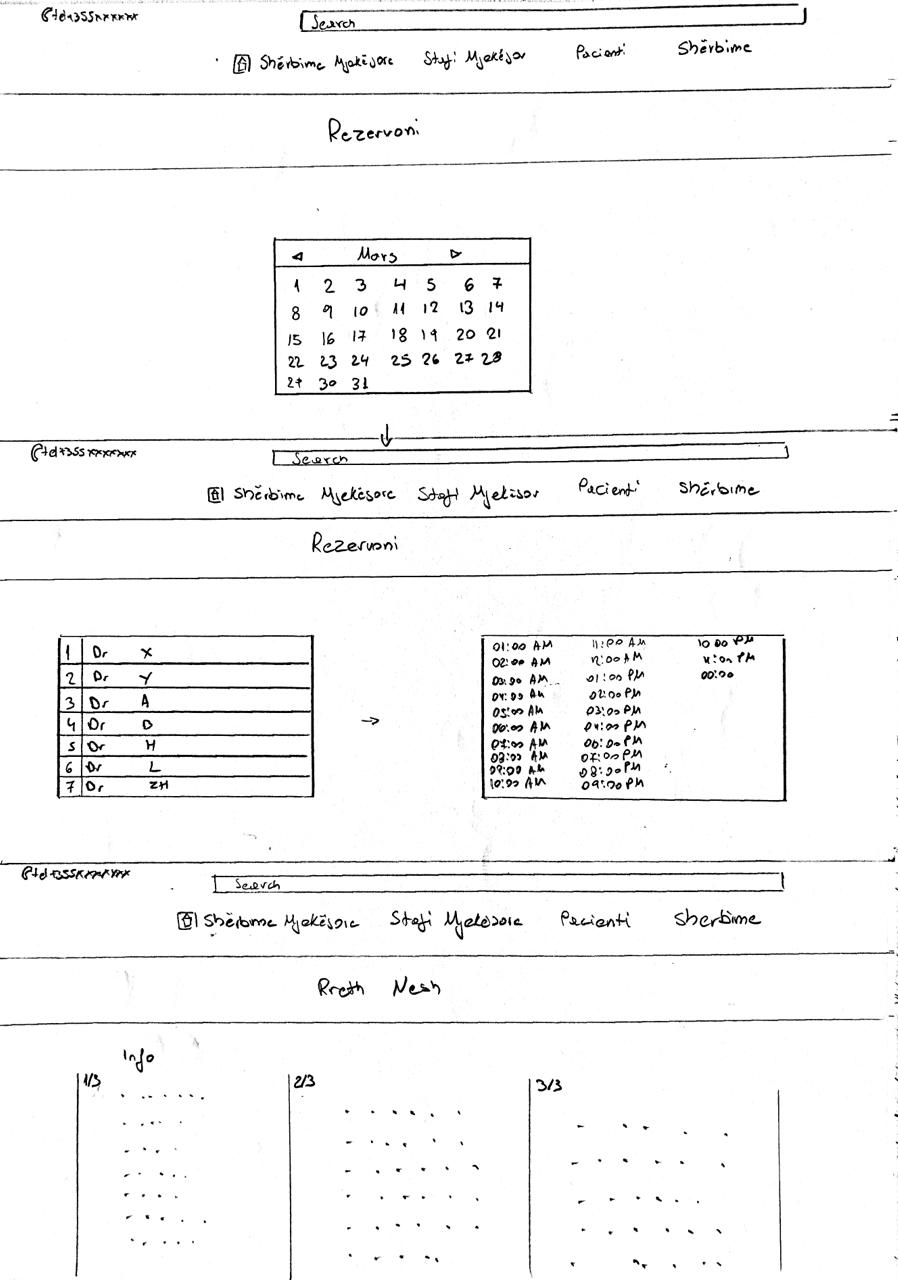 tel+355xxxxxx
Search
Shërbime Mjekësore Stafi Mjekësor Pacienti Shërbime
Rezervoni
Mars
1 2 3 4 5 6 7
8 9 10 11 12 13 14
15 16 17 18 19 20 21
22 23 24 25 26 27 28
29 30 31
tel+355xxxxxxx
Search
Shërbime Mjekësore Stafi Mjekësor Pacienti Shërbime
Rezervoni
1 Dr X
2 Dr Y
3 Dr A
4 Dr D
5 Dr H
6 Dr L
7 Dr ZH
01:00 AM 11:00 AM 10:00 PM
02:00 AM 12:00 AM 11:00 PM
03:00 AM 01:00 PM 00:00
04:00 AM 02:00 PM
05:00 AM 03:00 PM
06:00 AM 04:00 PM
07:00 AM 06:00 PM
08:00 AM 07:00 PM
09:00 AM 08:00 PM
10:00 AM 09:00 PM
tel+355xxxxxxx
Search
Shërbime Mjekësore Stafi Mjekësore Pacienti Sherbime
Rreth Nesh
Info
1/3 2/3 3/3